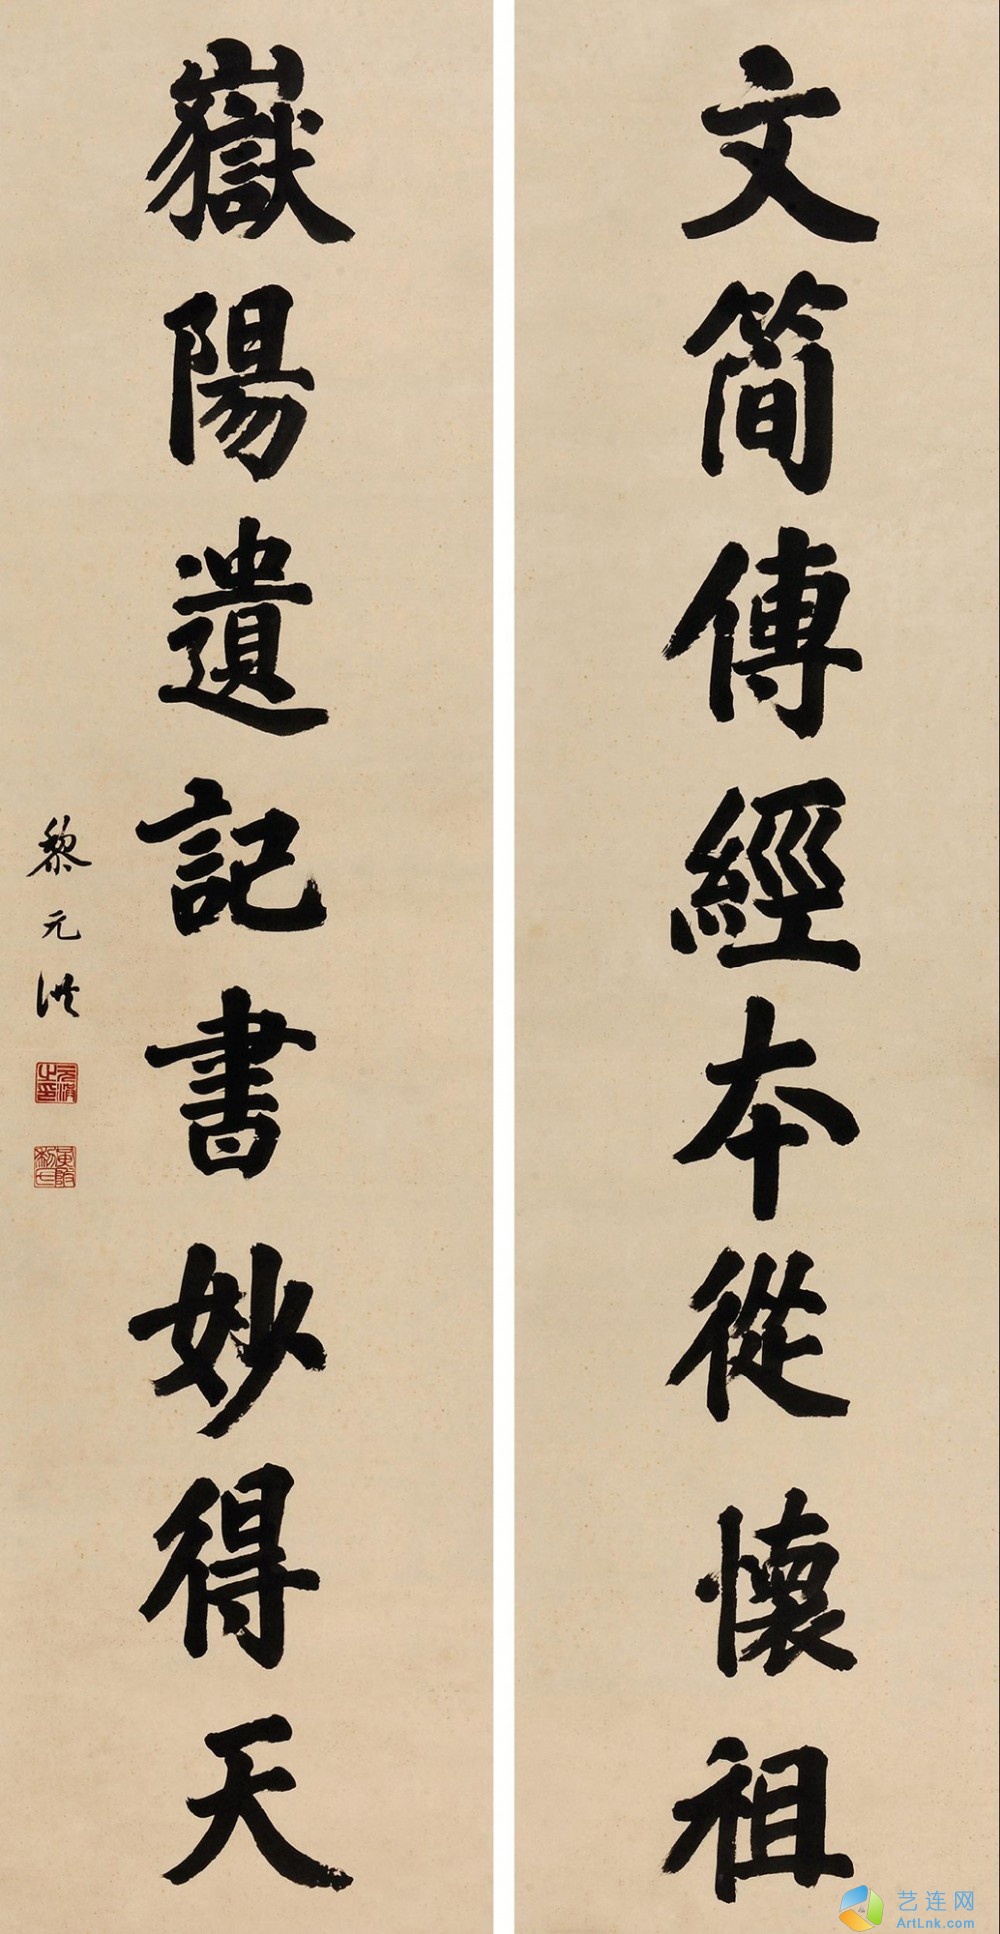 文簡傳經本從懷祖
嶽陽遺記書妙得天
黎元洪
艺连网
ArtLnk.com